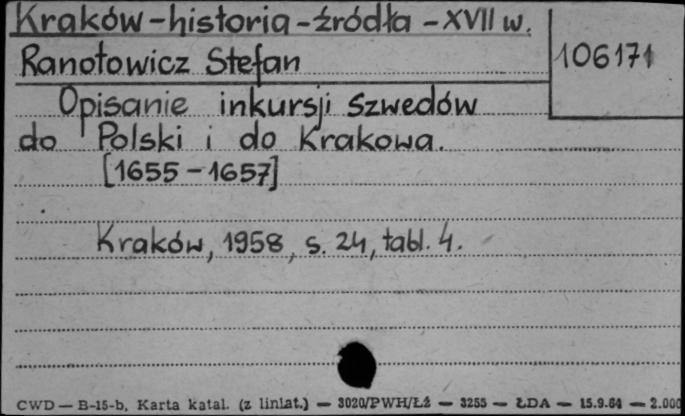 Kraków-historia-źródła-XVII w.
106171
Ranotowicz Stefan
Opisanie inkursji Szwedów
do Polski i do Krakowa.
[1655-1657]
Kraków, 1958, s. 24, tabl. 4.
CWD — B-15-b, Karta katal. (z liniat.) — 3020/PWH/ŁŻ — 3255 — ŁDA — 15.9.64 — 2.000